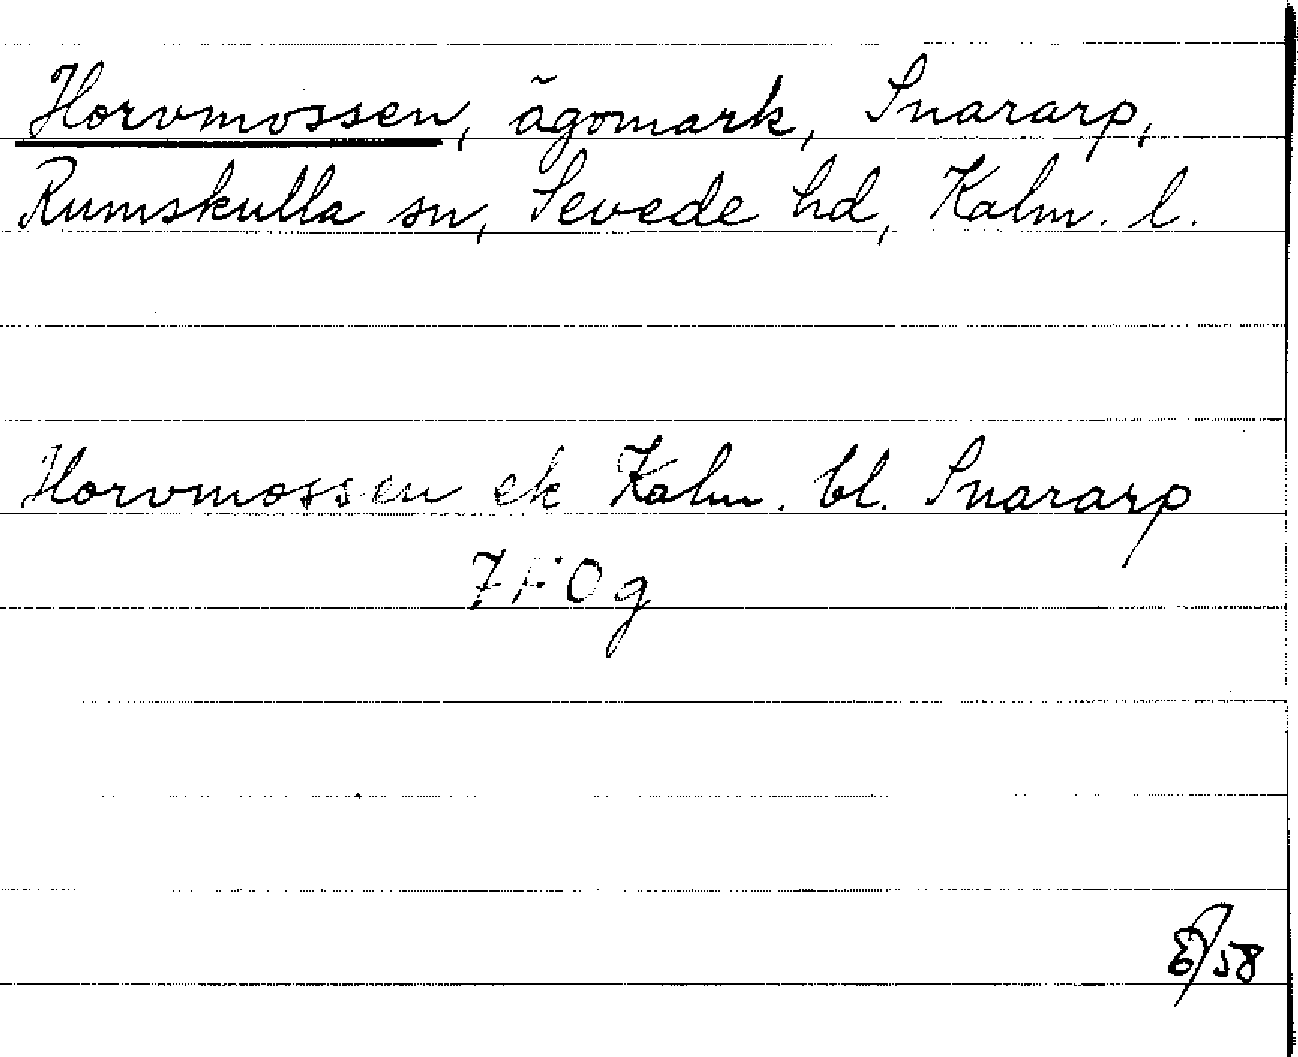 Horvmossen, ägomark, Snararp,
Rumskulla sn, Sevede hd, Kalm. l.
Horvmossen ek Kalm. bl. Snararp
7F0g
/58